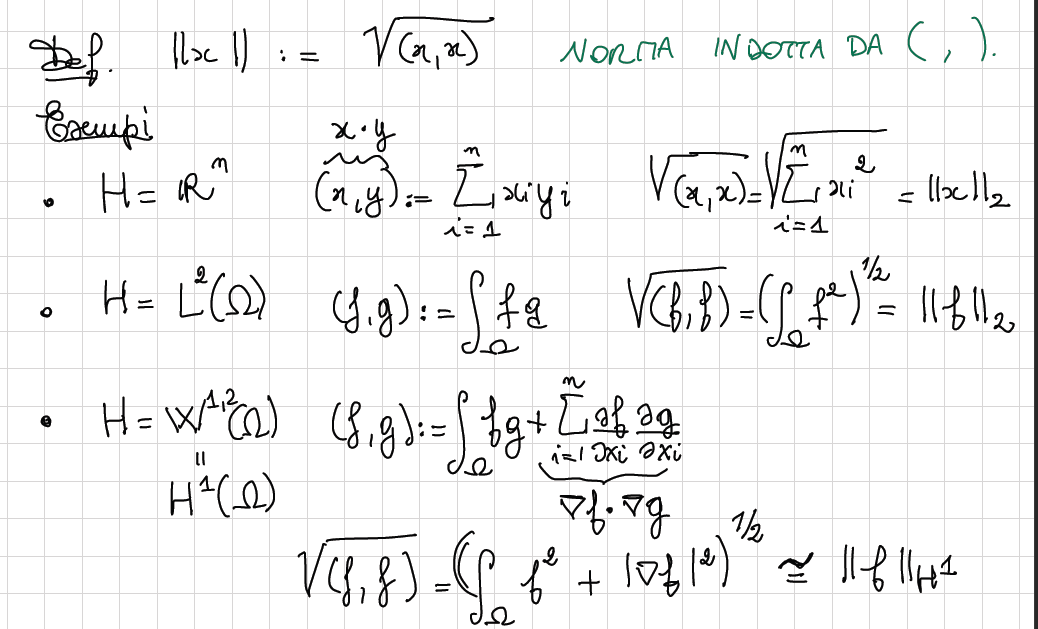 Def. ||x|| := √(x,x) NORMA INDOTTA DA ( , ).
Esempi
• H = ℝⁿ (x,y) := ∑_{i=1}^{n} xᵢyᵢ √(x,x) = √(∑_{i=1}^{n} xᵢ²) = ||x||₂
x·y
• H = L²(Ω) (f,g) := ∫_Ω fg √(f,f) = (∫_Ω f²)^{1/2} = ||f||₂
• H = W^{1,2}(Ω) (f,g) := ∫_Ω fg + ∑_{i=1}^{n} ∂f/∂xᵢ ∂g/∂xᵢ
=
H¹(Ω) ∇f·∇g
√(f,f) = (∫_Ω f² + |∇f|²)^{1/2} ≅ ||f||_{H¹}